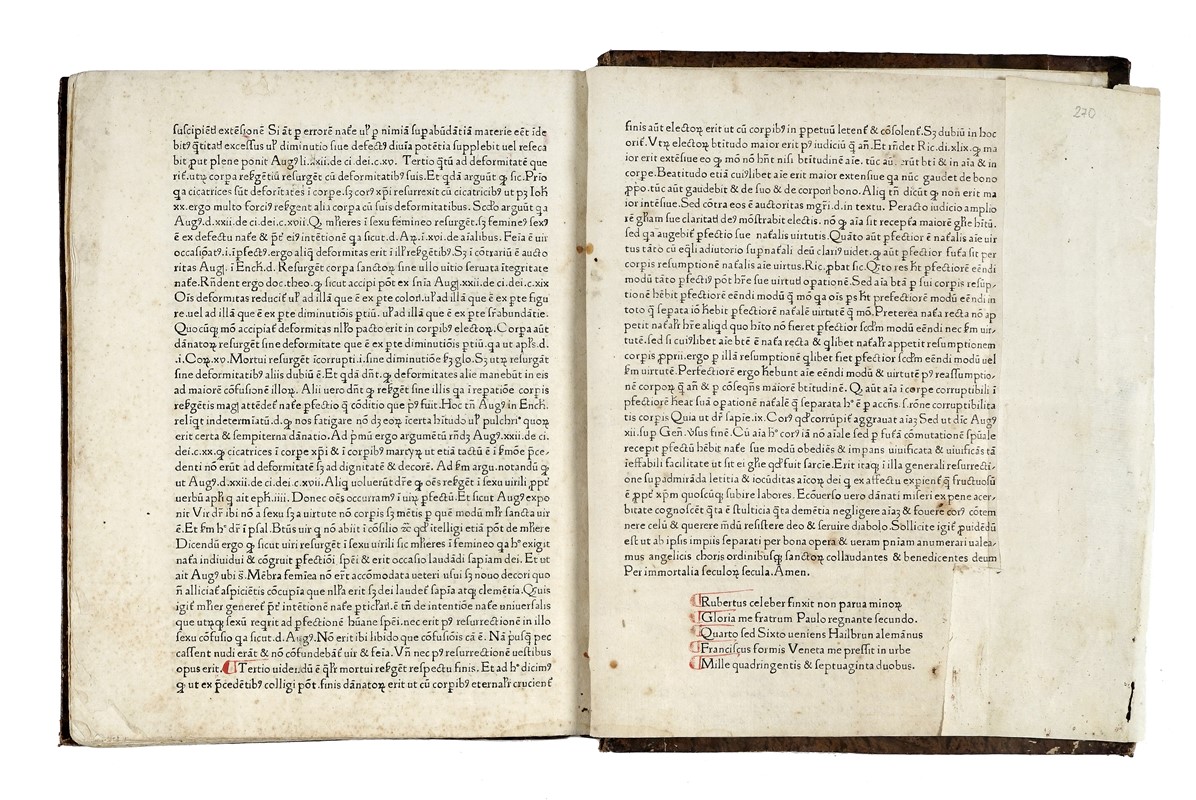 suscipiēdi extēsionē Si āt ꝑ errorē natͤe uꝉ ꝑ nimiā supabūdātiā materie eēt īde
bitꝰ q̄titati excessus uꝉ diminutio siue defectꝰ diuīa potētia supplebit uel reseca
bit put plene ponit Augꝰ li. xxii. de ci. dei. c. xv. Tertio q̄tū ad deformitatē que
rit. utꝝ corpa reſgētiū resurgēt cū deformitatibꝰ suis. Et qdā arguūt ꝙ sic. Prio
qa cicatrices sūt deformitates ī corpe. sꝫ corꝰ xpī resurrexit cū cicatricibꝰ ut pꝫ Ioh̄
xx. ergo multo forciꝰ resgent alia corpa cū suis deformitatibus. Scdo arguūt qa
Augꝰ. d. xxii. de ci. dei. c. xvii. Q. mlieres ī sexu femineo resurgēt. sꝫ femineꝰ sexꝰ
ē ex defectu natͤe & p̄t eiꝰ intētionē qa sicut. d. Aꝝ. ī. xvi. de aialibus. Feīa ē uir
occasiōatꝰ. i. īpfectꝰ. ergo aliq̄ deformitas erit ī illis resgētibꝰ. Sꝫ ī cōtrariū ē aucto
ritas Augꝰ. ī Ench. d. Resurgēt corpa sanctoꝝ sine ullo uitio seruata ītegritate
natͤe. Rn̄dent ergo doc. theo. ꝙ sicut accipi pōt ex sn̄ia Augꝰ. xxii. de ci. dei. c. xix
Oīs deformitas reducit uꝉ ad illā que ē ex pte coloris. uꝉ ad illā que ē ex pte figu
re. uel ad illā que ē ex pte diminutiōis ptiū. uꝉ ad illā que ē ex pte suꝑabundātie.
Quocūqꝫ mō accipiatꝰ deformitas nllo pacto erit in corpibꝰ electoꝝ. Corpa aūt
dānatoꝝ resurgēt sine deformitate que ē ex pte diminutiōis ptiū. qa ut aplꝰ. d.
.i. Coꝝ. xv. Mortui resurgēt īcorrupti. i. sine diminutiōe ꝫ glo. Sꝫ utꝝ resurgāt
sine deformitatibꝰ aliis dubiū ē. Et qdā dn̄t. ꝙ deformitates alie manebūt in eis
ad maiorē cōfusionē illoꝝ. Alii uero dn̄t ꝙ resgēt sine illis qa ī repatiōe corpis
resgētis magꝭ attēdet natͤe pfectio q̄ cōditio que pꝰ fuit. Hoc tn̄ Augꝰ in Ench.
reliqt indeterīatū. d. ꝙ nos fatigare nō dꝫ eoꝝ īcerta hitudo uꝉ pulchriꝰ quoꝝ
erit certa & sempiterna dānatio. Ad pͥmū ergo argumētū rn̄dꝫ Augꝰ. xxii. de ci.
dei. c. xx. ꝙ cicatrices ī corpe xpī & ī corpibꝰ martyꝝ ut etiā tactū ē ī kmōe p̄ce
denti nō erūt ad deformitatē sꝫ ad dignitatē & decorē. Ad km arg. notandū ꝙ
ut Augꝰ. d. xxii. de ci. dei. c. xvii. Aliq uoluerūt dr̄e ꝙ oēs resgēt ī sexu uirili, ꝓpt̄
uerbū apli q ait eph. iiii. Donec oēs occurramꝰ ī uiꝝ pfectū. Et sicut Augꝰ expo
nit Vir dr̄ ibi nō a sexu sꝫ a uirtute nō corpis sꝫ mētis p quē modū mlꝰ sancta uir
ē. Et km hͦ dr̄ ī psal. Bt̄us uir q nō abiit ī cōsilio &c qd itelligi etiā pōt de mliere
Dicendū ergo ꝙ sicut uiri resurgēt ī sexu uirili sic mlieres ī femineo qa hͦ exigit
natͣa indiuidui & cōgruit pfectiōi spēi & erit occasio laudādi sapiam dei. Et ut
ait Augꝰ ubi s̄. Mēbra femīea nō ert̄ accōmodata ueteri usui sꝫ nouo decori quo
n̄ alliciat̄ aspiciētis cōcupīa que nlla erit sꝫ dei laudet̄ sapīa atqꝫ clemētia. Q̄uis
igit̄ mlier generet̄ pt̄ intētionē natͤe pticlaris. ē tn̄ de intentiōe natͤe uniuersalis
que utrūqꝫ sexū reqrit ad pfectionē hūane spēi. nec erit pꝰ resurrectionē in illo
sexu cōfusio qa sicut. d. Augꝰ. Nō erit ibi libido que cōfusiōis cā ē. Nā pusqꝫ pec
cassent nudi erāt & nō cōfundebāt̄ uir & feīa. Vn̄ nec pꝰ resurrectionē uestibus
opus erit. Tertio uidendū ē qlr̄ mortui resget respectu finis. Et ad hͦ dicimꝰ
ꝙ ut ex p̄cedētibꝰ colligi pōt. finis dānatoꝝ erit ut cū corpibꝰ eternalr̄ crucient̄
270
finis aūt electoꝝ erit ut cū corpibꝰ in ppetuū letent̄ & cōsolent̄. Sꝫ dubiū in hoc
orit̄. Vtꝝ electoꝝ btitudo maior erit pꝰ iudiciū q̄ an̄. Et rn̄det Ric. di. xlix. ꝙ ma
ior erit extēsiue eo ꝙ mō nō hn̄t nisi btitudinē aīe. tūc aū. erūt bt̄i & in aīa & in
corpe. Beatitudo etiā cuiꝰlibet aīe erit maior extensiue qa nūc gaudet de bono
ꝓpo. tūc aūt gaudebit & de suo & de corpori bono. Aliq tn̄ dicūt ꝙ non erit ma
ior intēsiue. Sed cōtra eos ē auctoritas mgr̄i. d. in textu. Peracto iudicio amplio
rē gl̄iam sue claritatis deꝰ mōstrabit electis. nō ꝙ aīa sit recepta maiorē gr̄e hitū.
sed qa augebit̄ pfectio sue natͣalis uirtutis. Quāto aūt pfectior ē natͣalis aīe uir
tus tāto cū eqli adiutorio supnatͣali deū clariꝰ uidet. ꝙ aūt pfectior futͣa sit per
corpis resumptionē natͣalis aīe uirtus. Ric. pbat sic. Qꝫto res hꝫ pfectiorē eēndi
modū tāto pfectiꝰ pōt hr̄e sue uirtutis opationē. Sed aīa bt̄a p sui corpis resūp-
tionē hēbit pfectiorē eēndi modū q̄ mō qa oīs ps hꝫ prefectiorē modū eēndi in
toto q̄ sepata iō hēbit pfectiorē natͣalē uirtutē q̄ mō. Preterea natͣa recta nō ap
petit natͣalr̄ hr̄e aliqd quo hito nō fieret pfectior scdm modū eēndi nec km uir-
tutē. sed si cuiꝰlibet aīe bt̄e ē natͣa recta & qlibet natͣalr̄ appetit resumptionem
corpis ꝓprii. ergo p illā resumptionē qlibet fiet pfectior scdm eēndi modū uel
km uirtutē. Perfectiorē ergo hēbunt aīe eēndi modū & uirtutē pꝰ reassumptio-
nē corpoꝝ q̄ an̄ & p cōseqn̄s maiorē btitudinē. Q. aūt aīa ī corpe corruptibili ī
pfectiorē heat suā opationē natͣalē q̄ separata hͦ ē p accn̄s. s. rōne corruptibilita
tis corpis Quia ut dr̄ sapīe. ix. Corꝰ qd corrūpit̄ aggrauat aīaꝫ. Sed ut dic Augꝰ
xii. sup Gen̄. ꝟsus finē. Cū aīa hͦ corꝰ iā nō aīale sed p futͣā cōmutationē spūale
recepit pfectū hēbit natͤe sue modū obediēs & impans uiuificata & uiuificās tā
īeffabili facilitate ut sit ei glͥie qd fuit sarcīe. Erit itaqꝫ ī illa generali resurrecti-
one supadmirāda letitia & iocūditas aīcoꝝ dei q ex affectu expient̄ q̄ fructuosū
ē ꝓpt̄ xp̄m quoscūqꝫ subire labores. Ecōuerso uero dānati miseri ex pene acer-
bitate cognoscēt q̄ta ē stulticia q̄ta demētia negligere aīaꝫ & fouere corꝰ cōtem
nere celū & querere mūdū resistere deo & seruire diabolo. Sollicite igit̄ ꝓuidēdū
est ut ab ipsis impiis separati per bona opera & ueram pn̄iam anumerari ualea-
mus angelicis choris ordinibusqꝫ sanctoꝝ collaudantes & benedicentes deum
Per immortalia seculoꝝ secula. Amen.
Rubertus celeber finxit non parua minoꝝ
Gloria me fratrum Paulo regnante secundo.
Quarto sed Sixto ueniens Hailbrun alemānus
Franciscus formis Veneta me pressit in urbe
Mille quadringentis & septuaginta duobus.